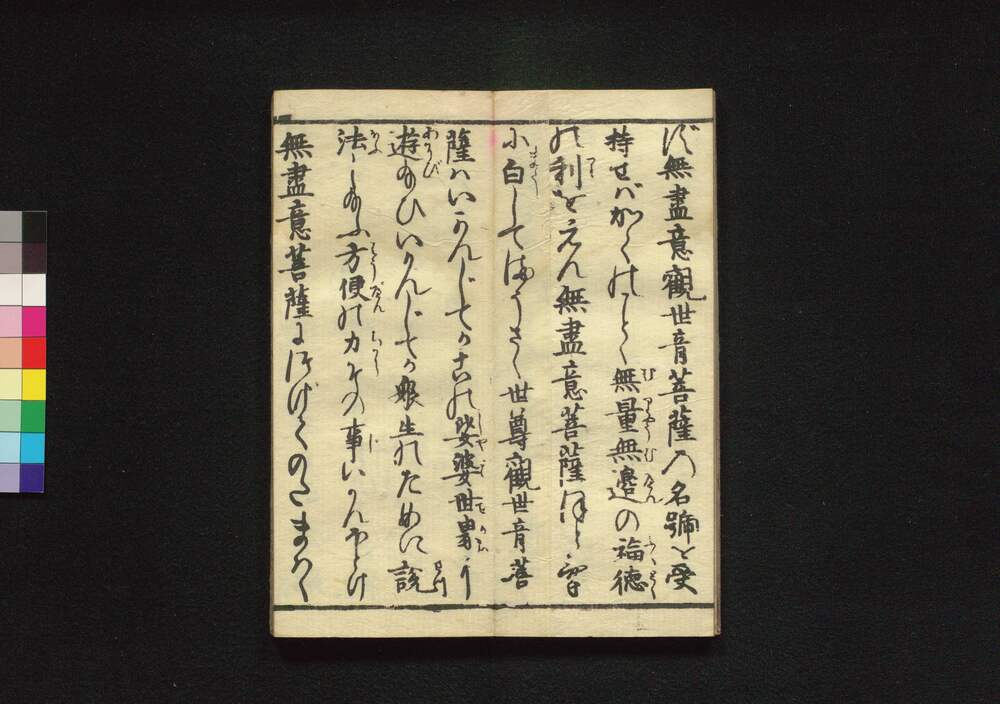 ず無盡意觀世音菩薩の名號を受
持せばかくのごとく無量無邊の福徳
の利をえん無盡意菩薩ほとけ
に白してまうさく世尊觀世音菩
薩はいかんしてかこの娑婆世界に
遊給ひいかんしてか衆生のために説
法し給ふ方便の力その事いかんほとけ
無盡意菩薩につげてのたまはく